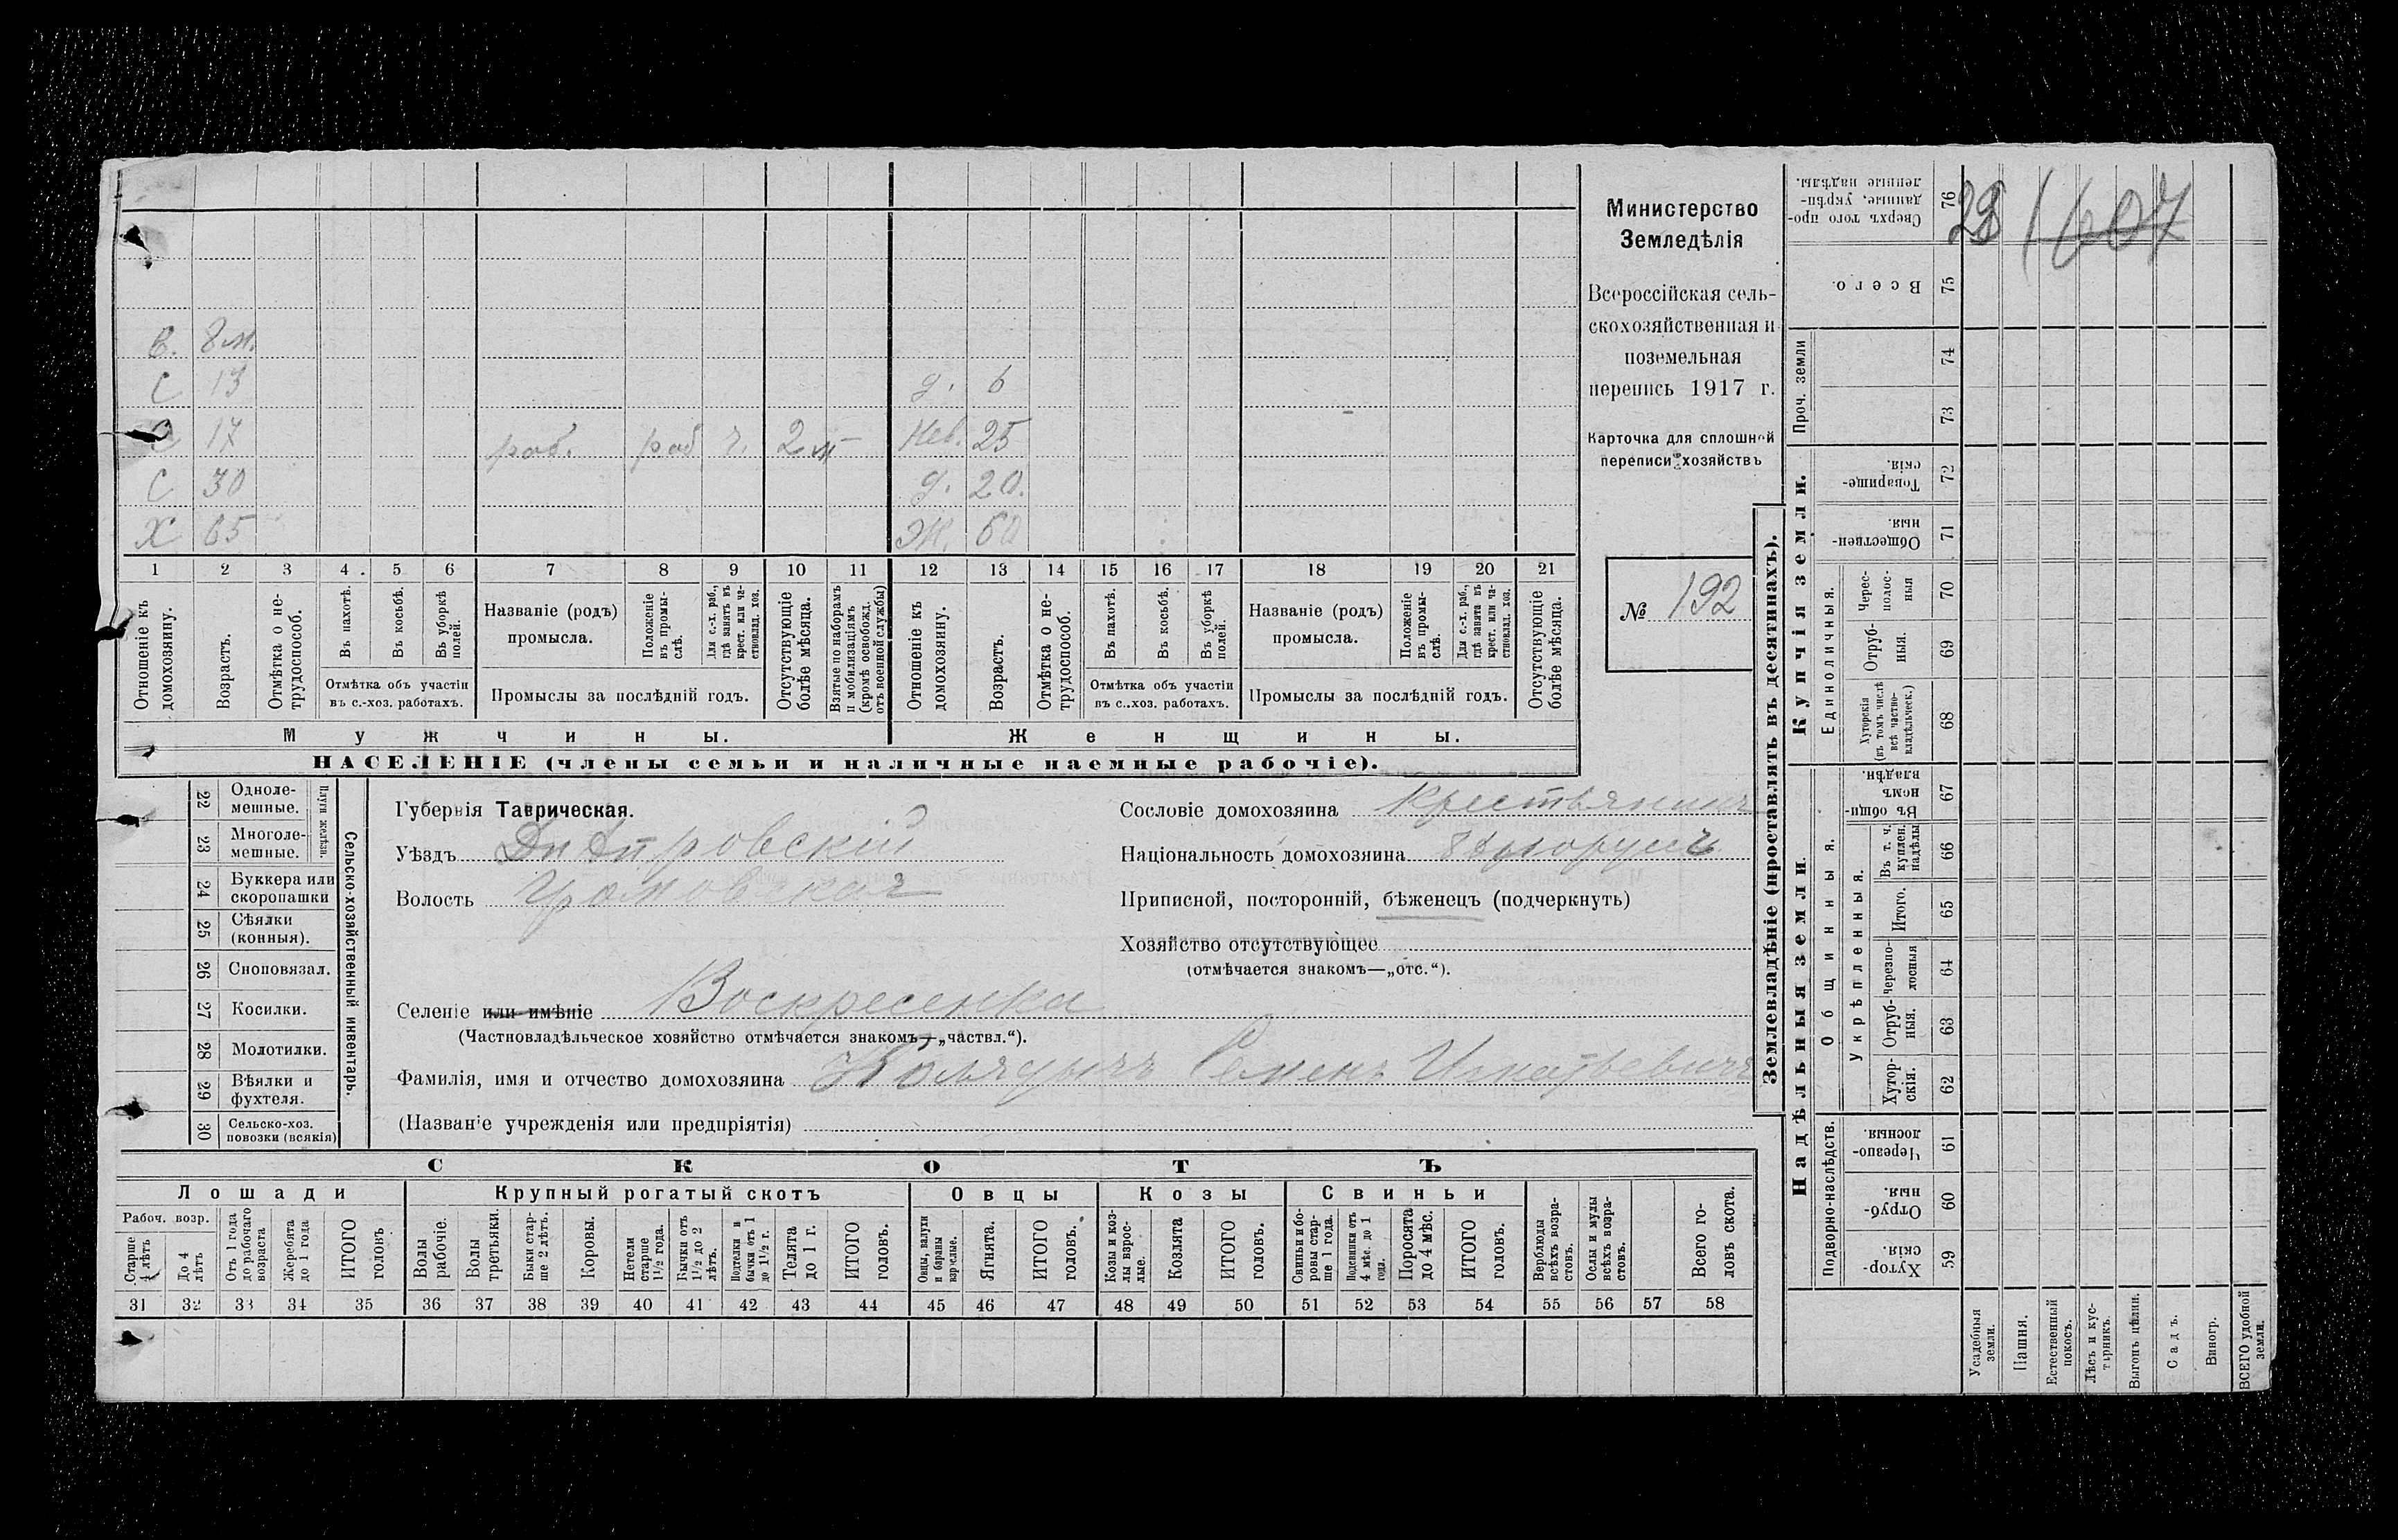 Министерство
Земледѣлія
Всероссійская сель-
скохозяйственная и
поземельная
перепись 1917 г.
Карточка для сплошной
переписи хозяйствъ
№ 192
28 1607
В. 8 м.
С 13
д. 6
С 17 раб. раб ч. 2 м Нев. 25
С 30 д. 20.
Х 65 Ж. 60
1 2 3 4 5 6 7 8 9 10 11 12 13 14 15 16 17 18 19 20 21
Отношеніе къ домохозяину.
Возрастъ.
Отмѣтка о не-трудоспособ.
Въ пахотѣ.
Въ косьбѣ.
Въ уборкѣ полей.
Отмѣтка объ участіи
въ с.-хоз. работахъ.
Названіе (родъ)
промысла.
Положеніе въ промы-слѣ.
Для с.-х. раб., гдѣ занятъ въ крест. или ча-ствовлад. хоз.
Промыслы за послѣдній годъ.
Отсутствующіе болѣе мѣсяца.
Взятые по наборамъ и мобилизаціямъ (кромѣ освобожд. отъ военной службы)
Отношеніе къ домохозяину.
Возрастъ.
Отмѣтка о не-трудоспособ.
Въ пахотѣ.
Въ косьбѣ.
Въ уборкѣ полей.
Отмѣтка объ участіи
въ с..хоз. работахъ.
Названіе (родъ)
промысла.
Положеніе въ промы-слѣ.
Для с.-х. раб., гдѣ занята въ крест. или ча-ствовлад. хоз.
Промыслы за послѣдній годъ.
Отсутствующіе болѣе мѣсяца.
Мужчины. Женщины.
НАСЕЛЕНІЕ (члены семьи и наличные наемные рабочіе).
22 Одноле-мешные.
23 Многоле-мешные.
Плуги желѣзн.
24 Буккера или скоропашки
25 Сѣялки (конныя).
26 Сноповязал.
27 Косилки.
28 Молотилки.
29 Вѣялки и фухтеля.
30 Сельско-хоз. повозки (всякія)
Сельско-хозяйственный инвентарь.
Губернія Таврическая.
Уѣздъ Днѣпровскій
Волость
Селеніе или имѣніе Воскресенка
(Частновладѣльческое хозяйство отмѣчается знакомъ—„частвл.“).
Фамилія, имя и отчество домохозяина Семенъ Игнатьевичъ
(Названіе учрежденія или предпріятія)
Сословіе домохозяина Крестьянинъ
Національность домохозяина
Приписной, посторонній, бѣженецъ (подчеркнуть)
Хозяйство отсутствующее
(отмѣчается знакомъ—„отс.“).
СКОТЪ
Лошади Крупный рогатый скотъ Овцы Козы Свиньи
Рабоч. возр.
Старше 4 лѣтъ
До 4 лѣтъ
Отъ 1 года до рабочаго возраста
Жеребята до 1 года
ИТОГО головъ
Волы рабочіе.
Волы третьяки.
Быки стар-ше 2 лѣтъ.
Коровы.
Нетели старше 1 1/2 года.
Бычки отъ 1 1/2 до 2 лѣтъ.
Подтелки и бычки отъ 1 до 1 1/2 г.
Телята до 1 г.
ИТОГО головъ.
Овцы, валухи и бараны взрослые.
Ягнята.
ИТОГО головъ.
Козы и коз-лы взрос-лые.
Козлята
ИТОГО головъ.
Свиньи и бо-ровы стар-ше 1 года.
Подсвинки отъ 4 мѣс. до 1 года.
Поросята до 4 мѣс.
ИТОГО головъ.
Верблюды всѣхъ возра-стовъ.
Ослы и мулы всѣхъ возра-стовъ.
Всего го-ловъ скота.
31 32 33 34 35 36 37 38 39 40 41 42 43 44 45 46 47 48 49 50 51 52 53 54 55 56 57 58
Землевладѣніе (проставлять въ десятинахъ).
Надѣльныя земли
Подворно-наслѣдств.
Хутор-скія. 59
Отруб-ныя. 60
Черезпо-лосныя. 61
Общинныя.
Укрѣпленныя.
Хутор-скія. 62
Отруб-ныя. 63
Черезпо-лосныя 64
Итого. 65
Въ т. ч. куплен. надѣлы 66
Въ общи-номъ владѣн. 67
Купчія земли.
Единоличныя.
Хуторскія (въ томъ числѣ всѣ частно-владѣльческ.) 68
Отруб-ныя. 69
Черес-полос-ныя 70
Обществен-ныя. 71
Товарище-скія. 72
Проч. земли
73 74
Всего. 75
Сверхъ того про-данные, укрѣп-ленные надѣлы. 76
Усадебныя земли.
Пашня.
Естественный покосъ.
Лѣсъ и кус-тарникъ.
Выгонъ цѣлин.
Садъ.
Виногр.
ВСЕГО удобной земли.